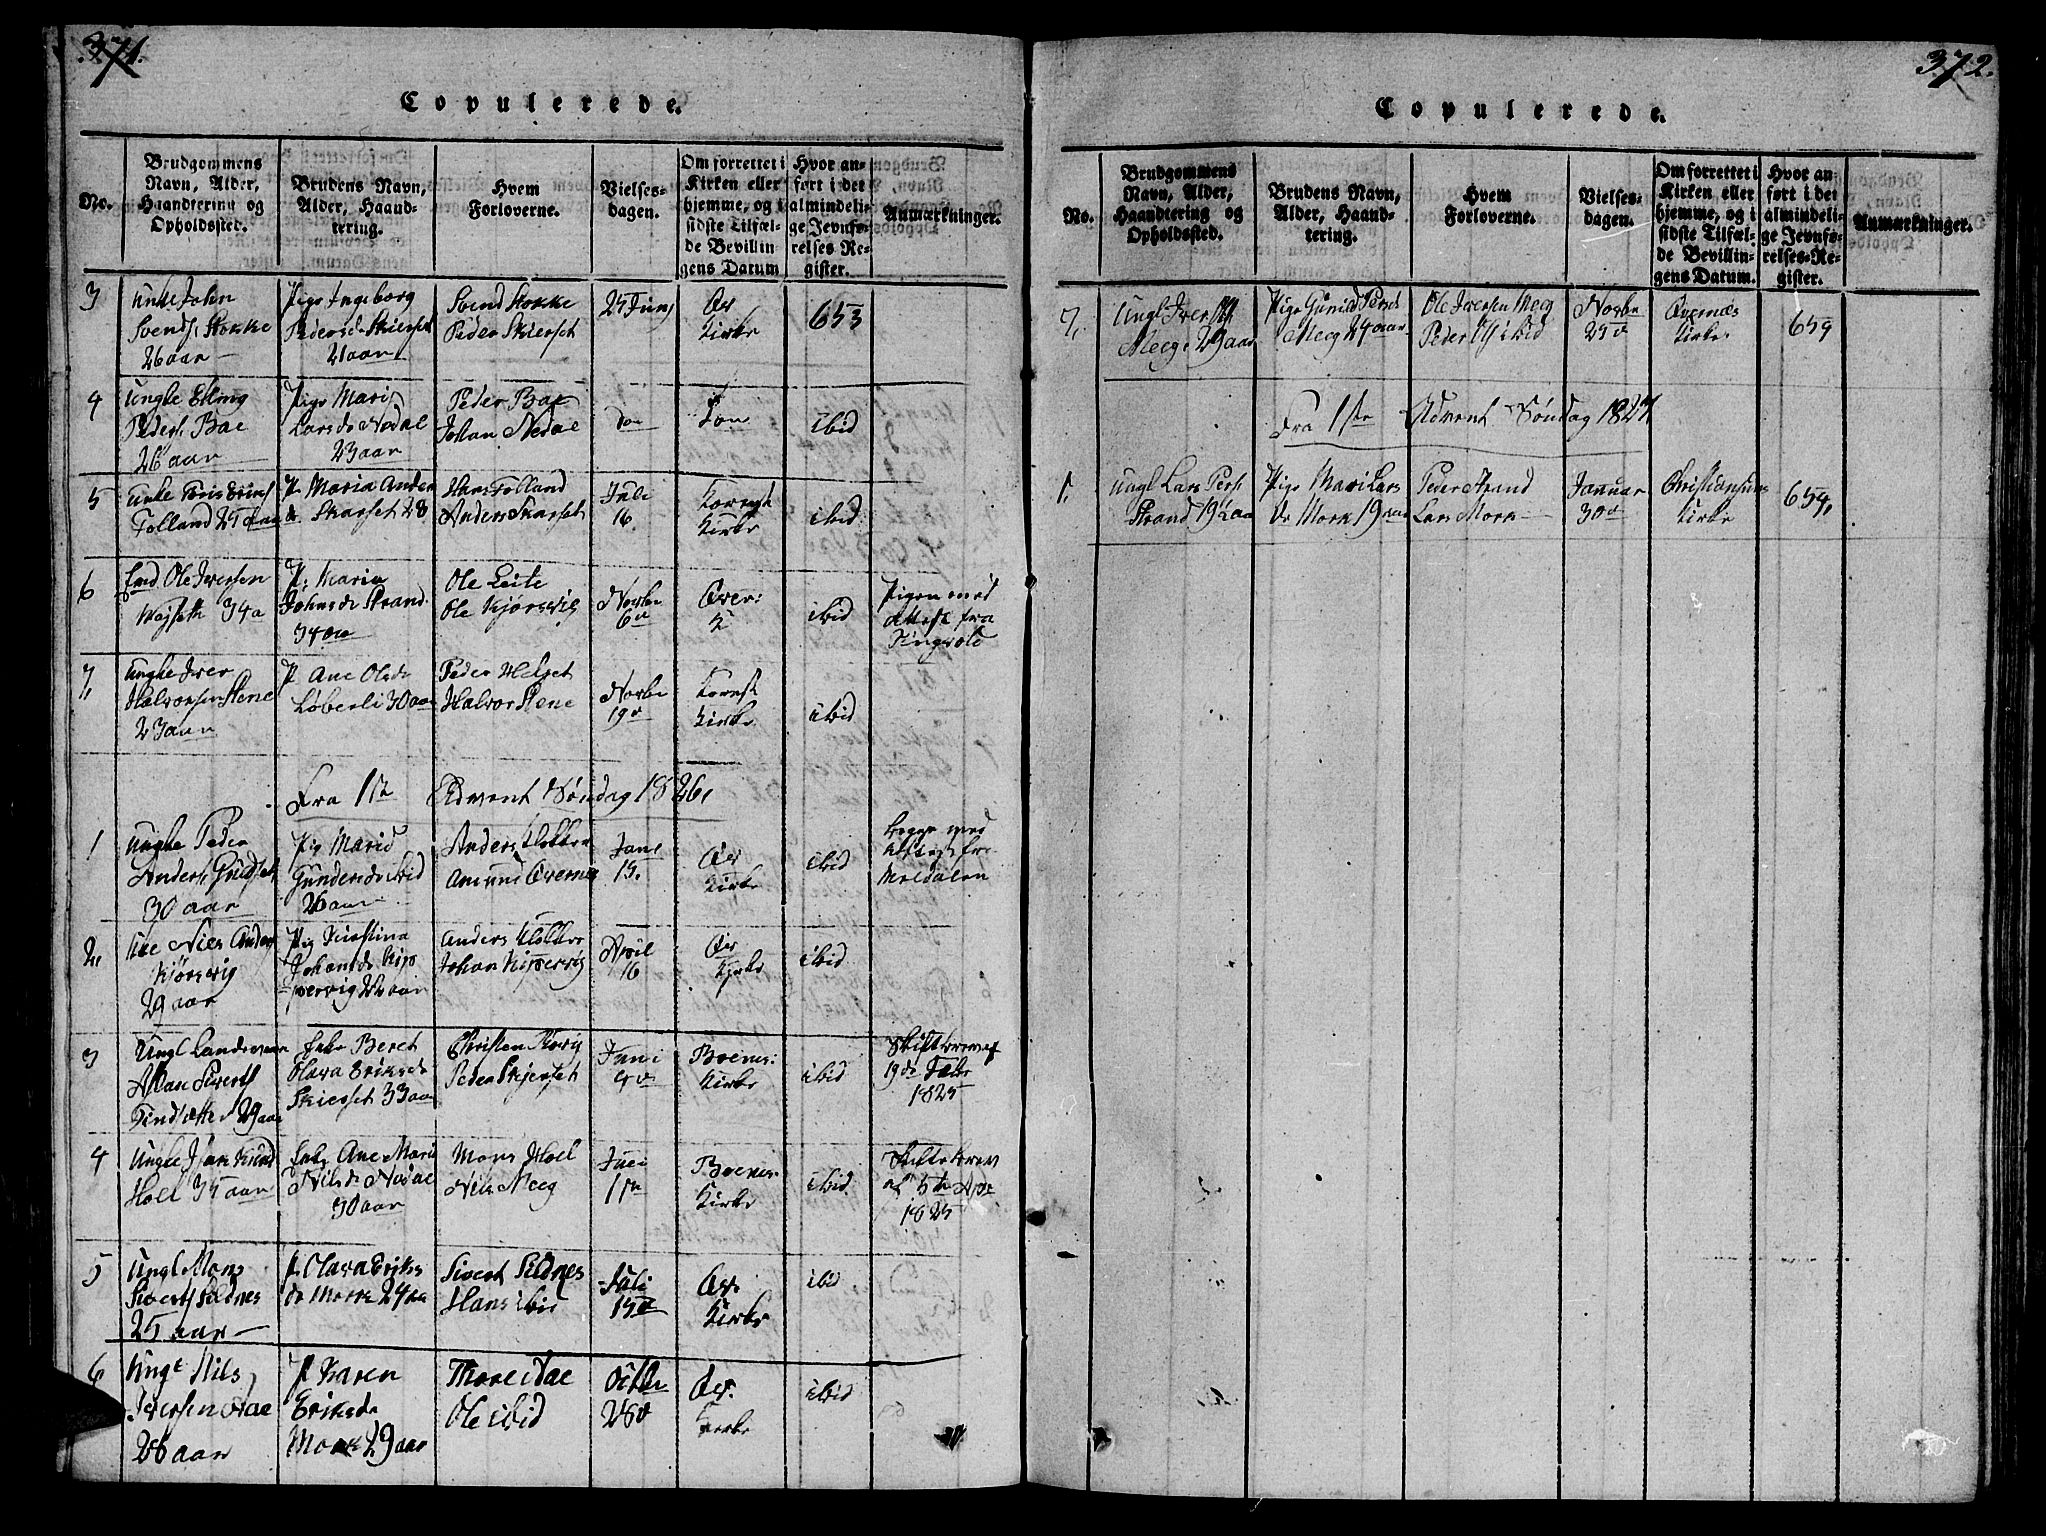 371.
Copulerede.
No.
Brudgommens Navn, Alder, Haandtering og Opholdssted.
Brudens Navn, Alder, Haandtering.
Hvem Forloverne.
Vielsesdagen.
Om forrettet i Kirken eller hjemme, og i sidste Tilfælde Bevillingens Datum
Hvor anført i det almindelige Jevnførelses Register.
Anmærkninger.
3
Unke John
Svends. Stokke
26 aar
Pige Ingeborg
Pedersd Skierset
21 aar
Svend Stokke
Peder Skierset
25 Junj
Øv
Kirke
653
4
Ungke Elling
Peders. Bae
26 aar
Pige Mari
Larsd Nodal
23 aar
Peder Bae
Johan Nedal
do
do
ibid
5
Folland 25 aar
P. Maria Anders
d. Skarset 28
Hans Folland
Anders Skarset
Juli
16.
Kornst
Kirke
ibid
6
Emd. Ole Iversen
34 a
P. Maria
Johnsd Strand.
34 aar
Ole Leite
Ole Kjørsvig
Novbr
6te
Øver:
K
ibid
Pigen med
Attest fra
Tingvold
7
Ungke Iver
Halvorsen Stene
23 aar
P Ane Olsd
Løberli 30 aar
Peder Helset
Halvor Stene
Novbr
19d
Kornst
Kirke
ibid
Fra 1ste Advent Søndag 1826.
1
Ungke Peder
Anders. Gridset
30 aar
Pig Marid
Gundersd
26 aar
Anders Klokker
Amund Øvernes
Janr
15.
Øv
Kirke
ibid
begge med
Attest fra
Moldalen
2
Nils Anders
Kjørsvig
29 aar
Pig Kirstina
Johansd Kip
pervig 22 aar
Anders Klokker
Johan Kippervig
April
16
Øv
Kirke
ibid
3
Ungl Landværn
Allan Siverts
29 aar
Enke Beret
Olava Eriksd
Skierset 33 aar
Christen
Peder Skjerset
Juni
4d
Boenes:
Kirke
ibid
Skiftebrev af
19de Febr
1825
4
Ungke Knud
Hoel 35 aar
Enke Ane Marie
Nilsd Nodal
30 aar
Mons Hoel
Nils Meeg
Juli
Boenes:
Kirke
ibid.
Skiftebrev
af 5te Apr
1825
5
Ungl Mons
Siverts Sildnes
25 aar
P. Olava Eriks
d Mork 24 aar
Sivert Sildnes
Hans ibid
Juli
15d
Øv.
Kirke
ibid
6
Ungk Nils
Iversen Dae
26 aar
P Karen
Eriksd
Mork 29 aar
Thore Dae
Ole ibid
Octbr
28d
Øv.
Kirke
ibid
372.
Copulerede.
No.
Brudgommens Navn, Alder, Haandtering og Opholdssted.
Brudens Navn, Alder, Haandtering.
Hvem Forloverne.
Vielsesdagen.
Om forrettet i Kirken eller hjemme, og i sidste Tilfælde Bevillingens Datum.
Hvor anført i det almindelige Jevnførelses-Register.
Anmærkninger.
7.
Ungl Iver
Meeg 29 aar
Pige Gunild Persd
Meeg 24 aar
Ole Iversen Meeg
Peder ibid
Novbr
25d
Øvernæs
Kirke
659
Fra 1ste Advent Søndag 1827
1.
Ungl Lars Pers
Strand 19½ aar
Pige Mari Lars
d Mork 19 aar
Peder Strand
Lars Mork
Januar
30d
Christiansunds
Kirke
659.